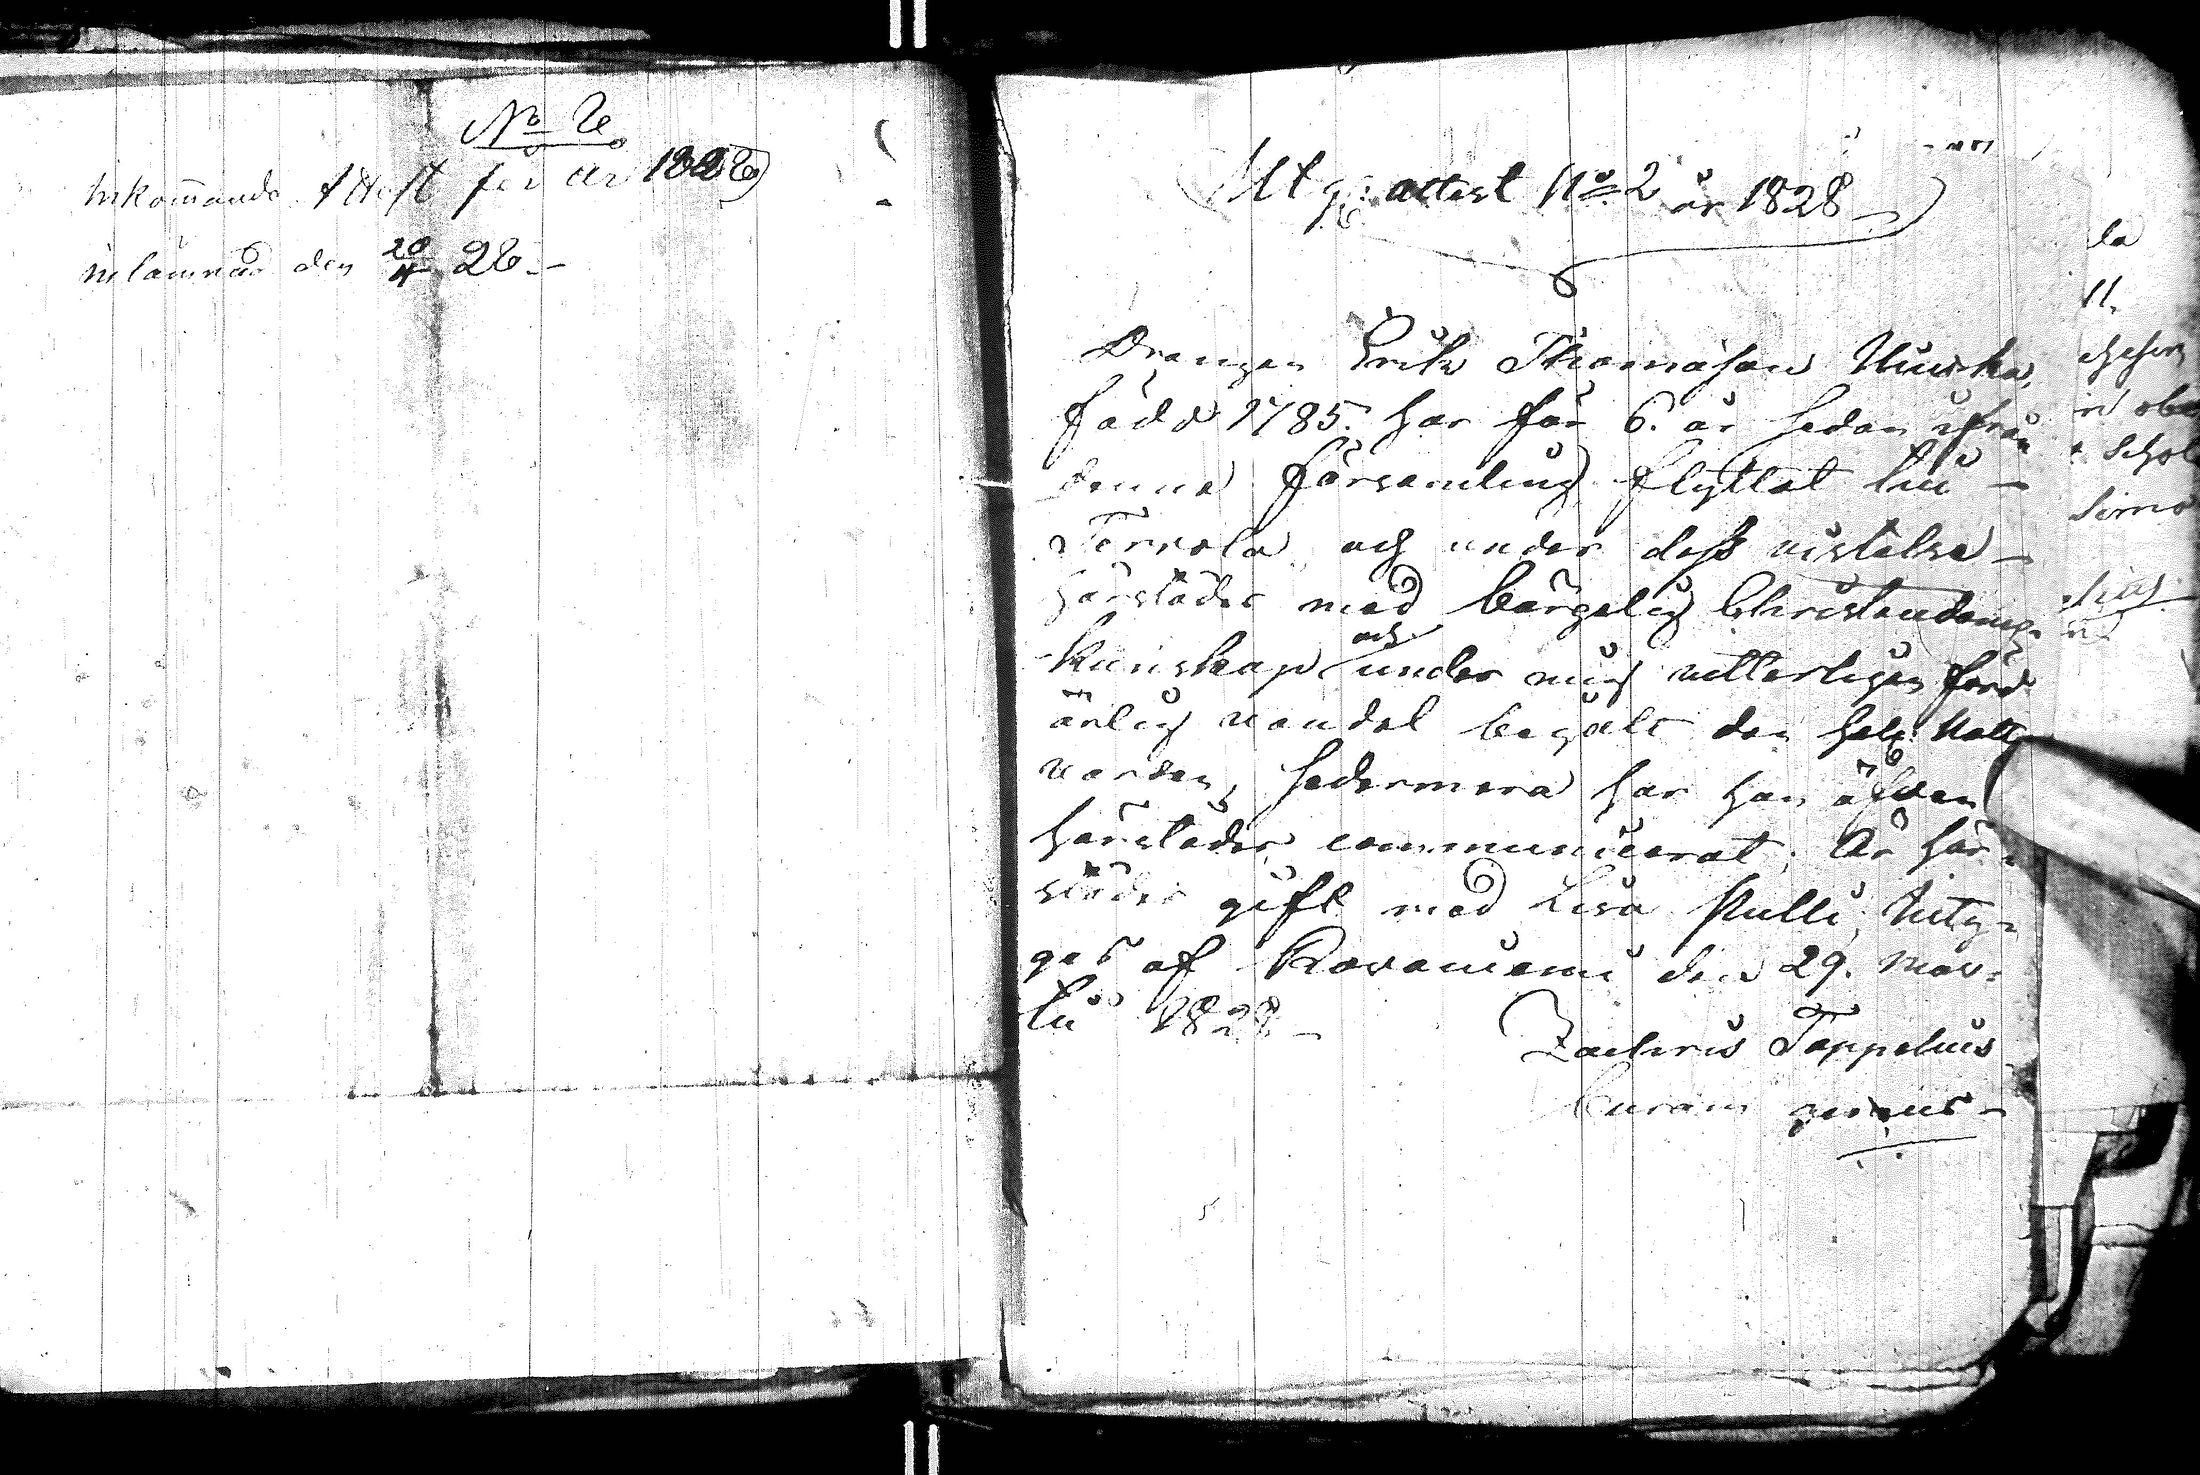 Inkommande Attest för år 1828
inlämnad den 20/4 28.-
Utg: attest No 2 år 1828
Drengen Erik Thomasson
född 1785. har för 6. år sedan ifrån
denna församling flyttat till
Tervola och under dess vistelse
härstädes med bärgelig Christendoms
kunskap och under mig vitterligen
ärlig vandel begått den helg. Natt-
varden, sedermera har han äfven
härstädes communicerat; Är här-
städes gift med Lisa Pulli, bety-
gas af Rovaniemi den 29. Mar-
tii 1828
Zachris Toppelius
Curam gerens